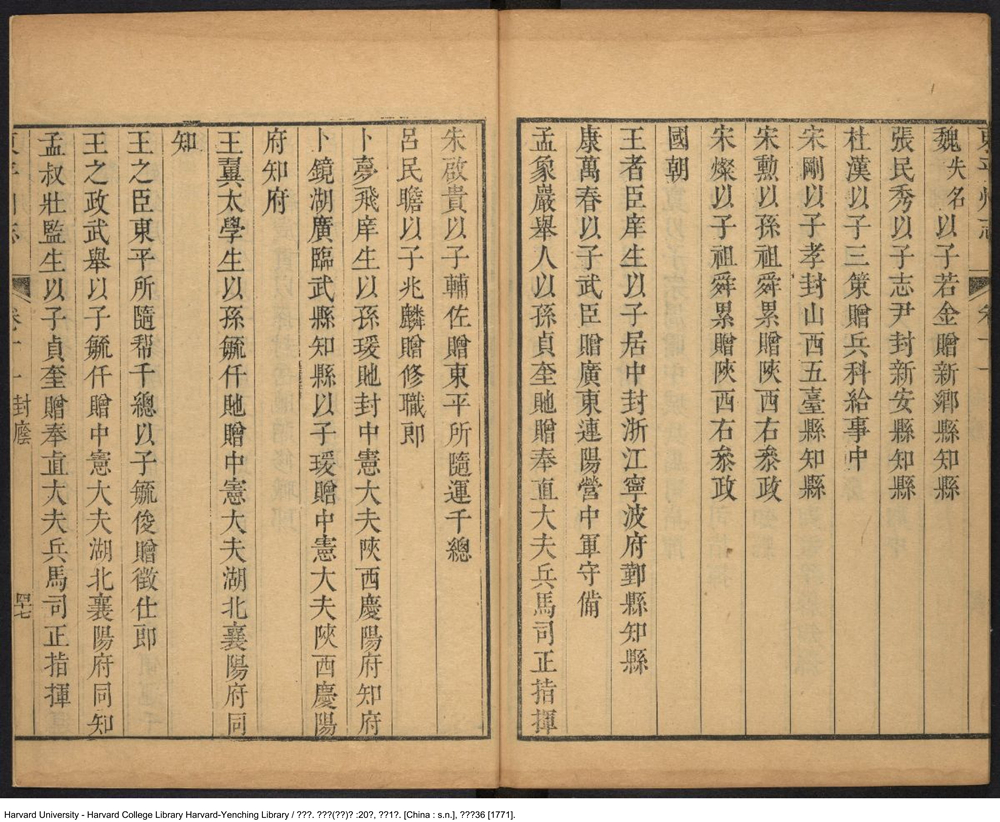 東平州志 卷十一
魏失名以子若金贈新鄉縣知縣
張民秀以子志尹封新安縣知縣
杜漢以子三策贈兵科給事中
宋剛以子孝封山西五臺縣知縣
宋勲以孫祖舜累贈陝西右叅政
宋燦以子祖舜累贈陝西右叅政
國朝
王者臣庠生以子居中封浙江寧波府鄞縣知縣
康萬春以子武臣贈廣東連陽營中軍守備
孟象巖舉人以孫貞奎貤贈奉直大夫兵馬司正指揮
朱啟貴以子輔佐贈東平所隨運千總
呂民瞻以子兆麟贈修職郎
卜夢飛庠生以孫瑗貤封中憲大夫陝西慶陽府知府
卜鏡湖廣臨武縣知縣以子瑗贈中憲大夫陝西慶陽
府知府
王翼太學生以孫毓仟貤贈中憲大夫湖北襄陽府同
知
王之臣東平所隨幇千總以子毓俊贈徵仕郎
王之政武舉以子毓仟贈中憲大夫湖北襄陽府同知
孟叔壯監生以子貞奎贈奉直大夫兵馬司正指揮
東平州志 卷十一 封廕 四七
Harvard University - Harvard College Library Harvard-Yenching Library / ???. ???(??)? :20?, ??1?. [China : s.n.], ???36 [1771].